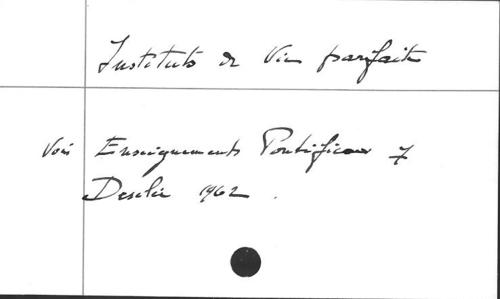 Instituts de Vie parfaite
Voir Enseignements Pontificaux 7
Desclée 1962.